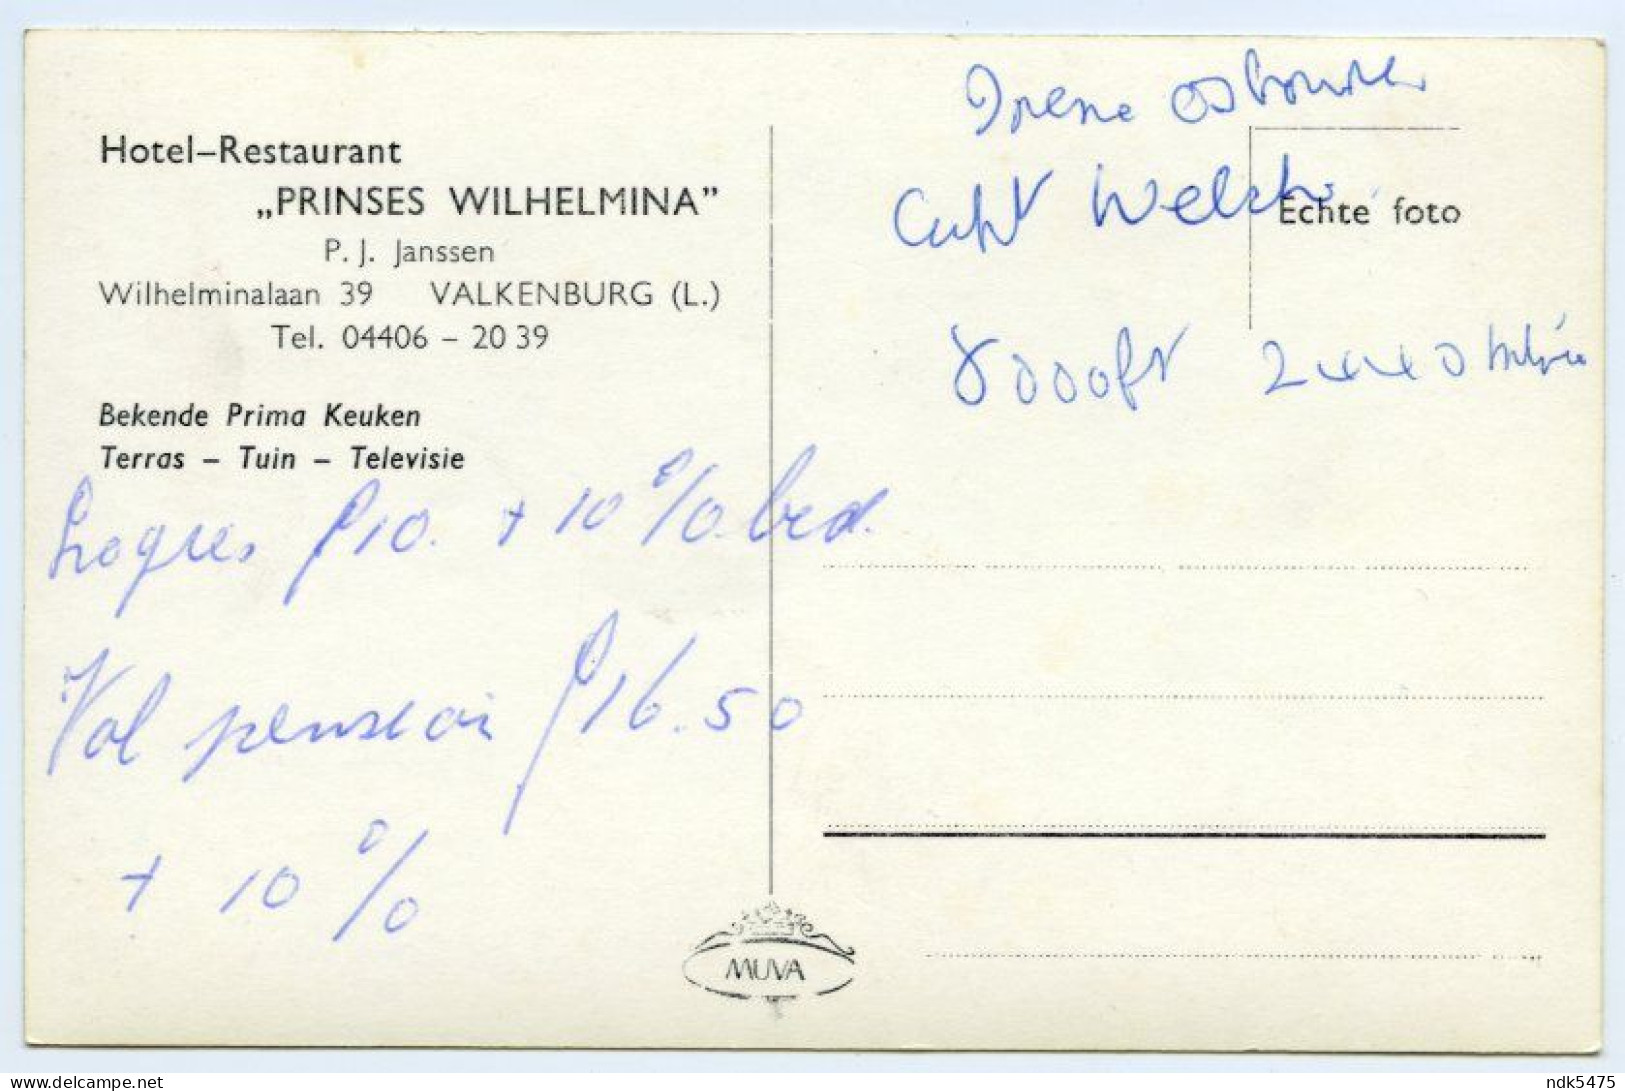 Hotel–Restaurant
„PRINSES WILHELMINA”
P. J. Janssen
Wilhelminalaan 39 VALKENBURG (L.)
Tel. 04406 – 20 39
Bekende Prima Keuken
Terras – Tuin – Televisie
Logies f10. + 10 % bed.
Vol pension f16.50
+ 10 %
Irene Osbourne
Welch
Echte foto
8000ft
MUVA
ndk5475